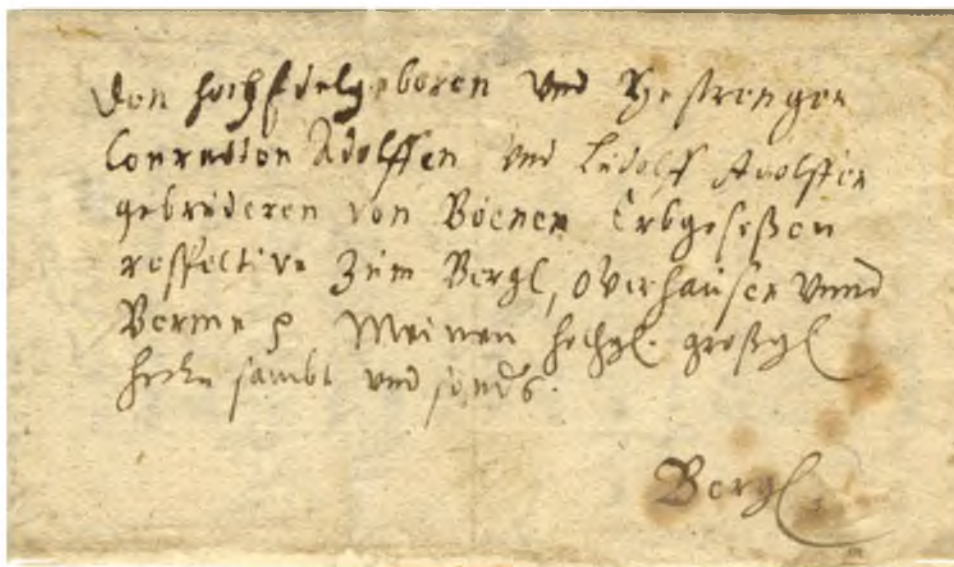 Den hochEdelgeboren und Gestrengen
Conradten Adolffen und Ludolff Adolffen
gebrüderen von Böenen Erbgeseßen
respective zum Bergl, Overhausen unnd
Meinen hochgl. großgl
herrn sambt und sonders.
Bergl